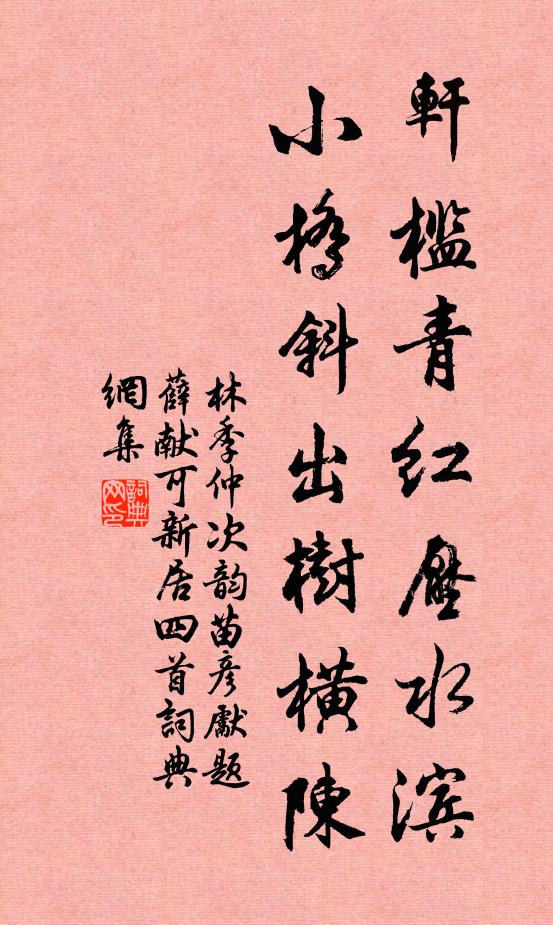 軒檻青红壓水滨
小橋斜出樹橫陳
林季仲次韵苗彦獻题
薛献可新居四首詞典
網集
詞典
网印